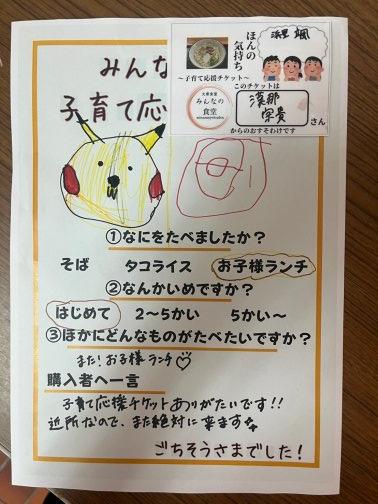 みんな
子育て応
ほんの
気持ち
〜子育て応援チケット〜
みんなの
食堂
このチケットは
さん
からのおすそわけです
①なにをたべましたか？
そば タコライス お子様ランチ
②なんかいめですか？
はじめて 2〜5かい 5かい〜
③ほかにどんなものがたべたいですか？
また！お子様ランチ♡
購入者へ一言
子育て応援チケットありがたいです！！
近所なので、また絶対に来ます
ごちそうさまでした！